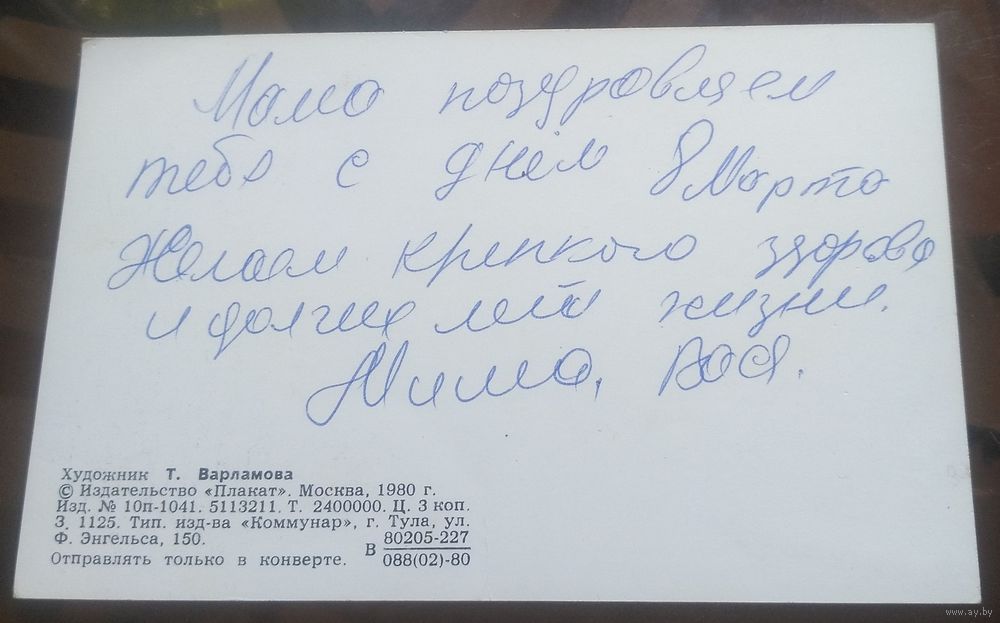 Мама поздровляем
тебя с днём 8 Марта
Желаем крепкого здоровья
и долгих лет жизни.
Мила, Вася.
Художник Т. Варламова
© Издательство «Плакат». Москва, 1980 г.
Изд. № 10п-1041. 5113211. Т. 2400000. Ц. 3 коп.
З. 1125. Тип. изд-ва «Коммунар», г. Тула, ул.
Ф. Энгельса, 150.
В 80205-227
088(02)-80
Отправлять только в конверте.
www.ay.by